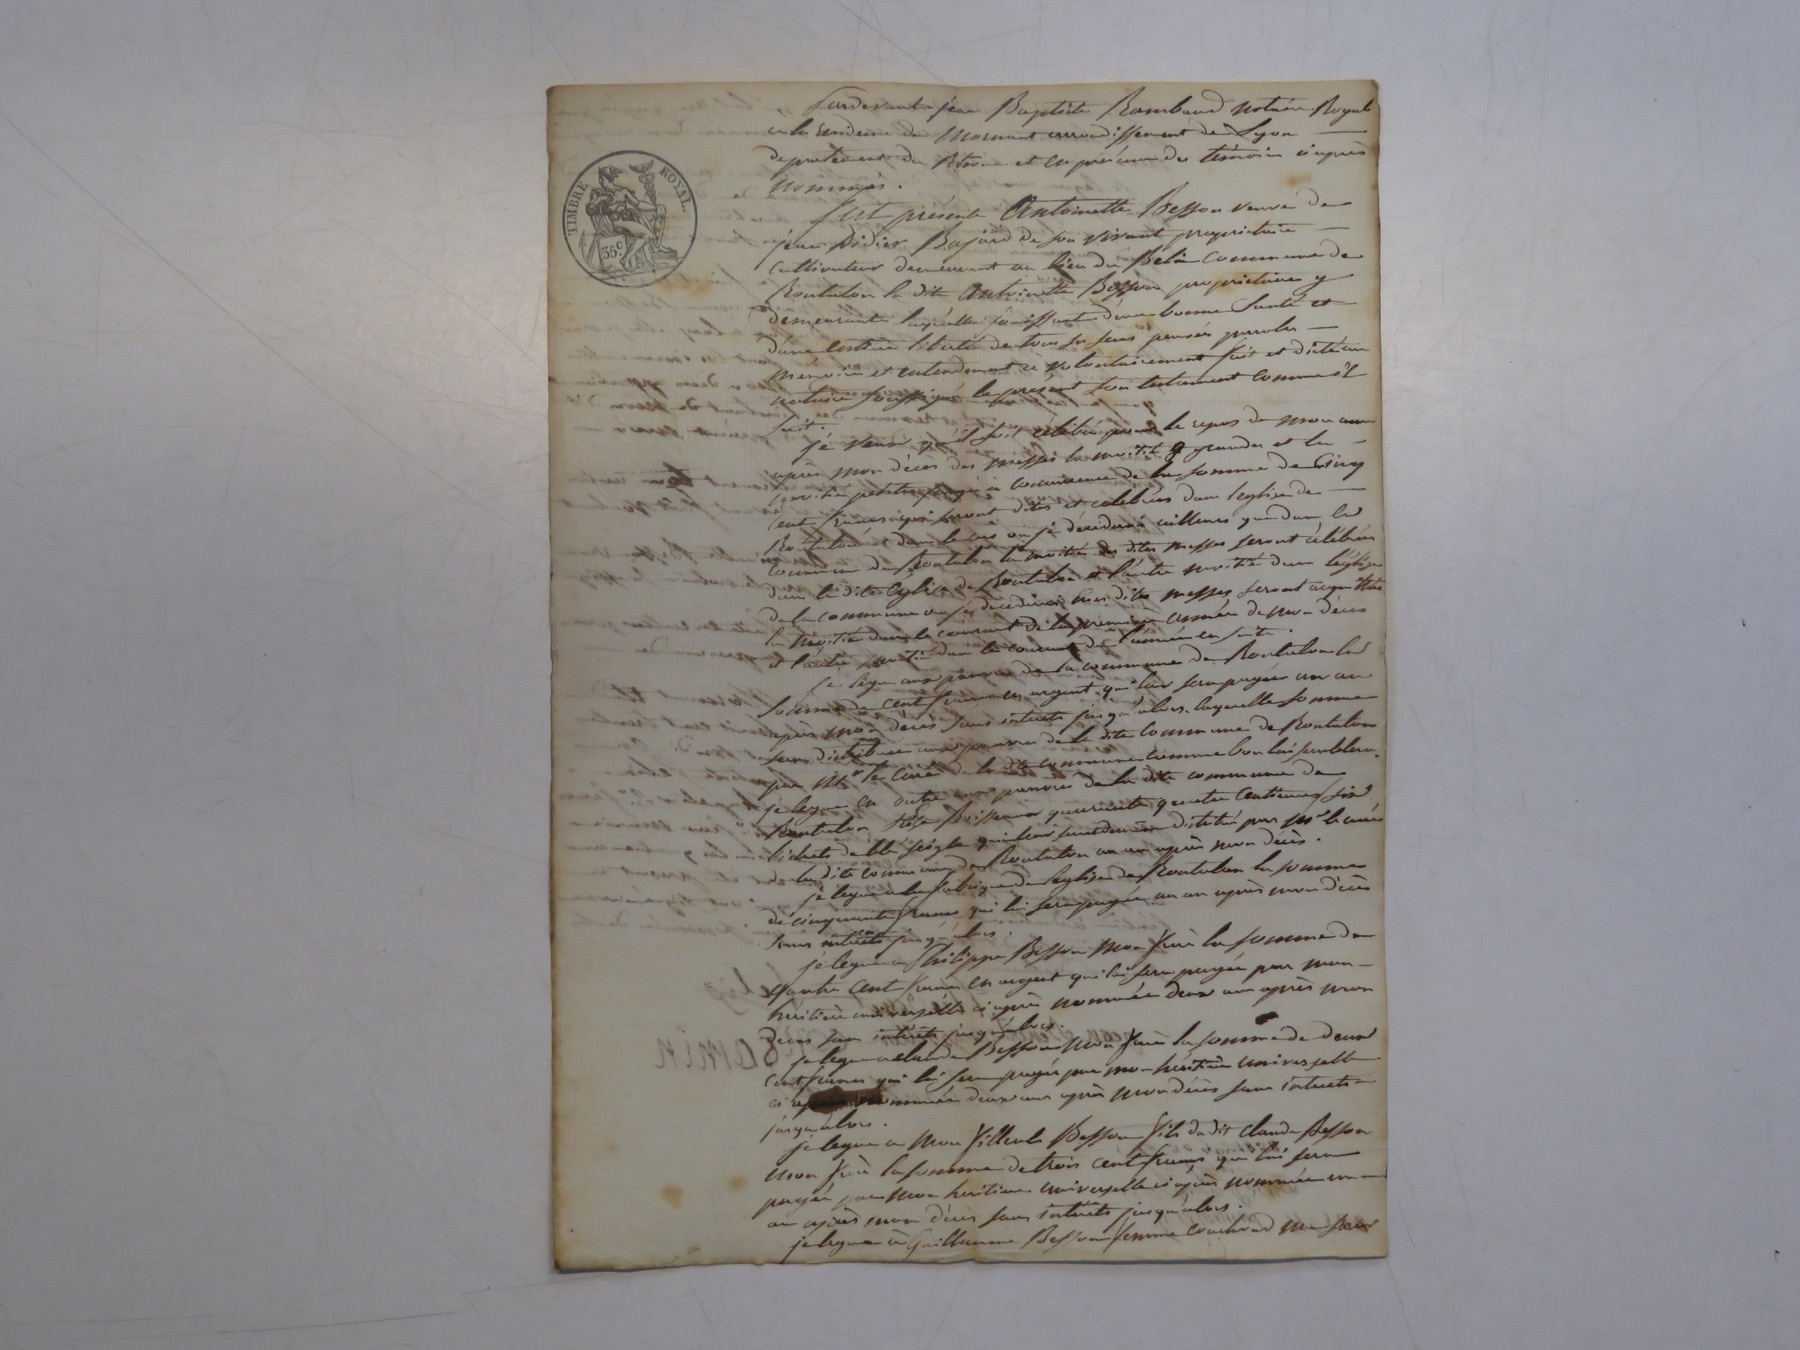 TIMBRE ROYAL.
35 c
Pardevant jean Baptiste Rambaud notaire Royal
a la residence de Mornant arrondissement de Lyon
departement du Rhone et en présence des témoins ci après
nommés.
Fut présente Antoinette Besson veuve de
jean Didier Bajard de son vivant propriétaire
cultivateur demeurant au lieu du Belin commune de
Rontalon la dite Antoinette Besson propriétaire y
demeurante laquelle jouissant d'une bonne santé et
d'une entière liberté de tous ses sens pensée parolle
mémoire et entendement à volontairement fait et dicté au
notaire soussigné le présent son testament comme s'y
suit.
je veux qu'il soit célébré pour le repos de mon ame
après mon décès des messes la moitié grandes et la
moitié petites jusqu'à concurrence de la somme de Cinq
cent francs qui seront dites et celebrées dans l'eglise de
Rontalon et dans le cas ou je décederai ailleurs que dans la
commune de Rontalon la moitié des dites messes seront célébrées
dans la dite église de Rontalon et l'autre moitié dans l'église
de la commune ou je decederai les dites messes seront acquittées
la moitié dans le courant de la première année de mon décès
et l'autre moitié dans le courant de l'année en suite.
je legue aux pauvres de la commune de Rontalon la
somme de cent francs en argent qui leur sera payée un an
après mon décès sans intérets jusqu'alors laquelle somme
sera distribuée aux pauvres de la dite commune de Rontalon
par Mr le Curé de la dite commune comme bon lui semblera.
je legue en outre aux pauvres de la dite commune de
Rontalon quarante quatre centiemes six
bichets de blé seigle qui leur sera par Mr le curé
de la dite commune de Rontalon un an après mon décès.
je legue a la fabrique de l'eglise de Rontalon la somme
de cinquante francs qui lui sera payée un an après mon décès
sans intérets jusqu'alors.
je legue a Philippe Besson mon frère la somme de
quatre cent francs en argent qui lui sera payée par mon
héritière universelle ci après nommée deux ans après mon
décès sans intérets jusqu'alors.
je legue a claude Besson mon frère la somme de deux
cent francs qui lui sera payée par mon héritière universelle
ci après nommée deux ans après mon décès sans intérets
jusqu'alors.
je legue a mon filleul Besson fils du dit claude Besson
mon frère la somme de trois cent francs qui lui sera
payée par mon heritière universelle ci après nommée un
an après mon décès sans intérêts jusqu'alors.
je legue à Guillaume Besson femme couchoud ma sœur